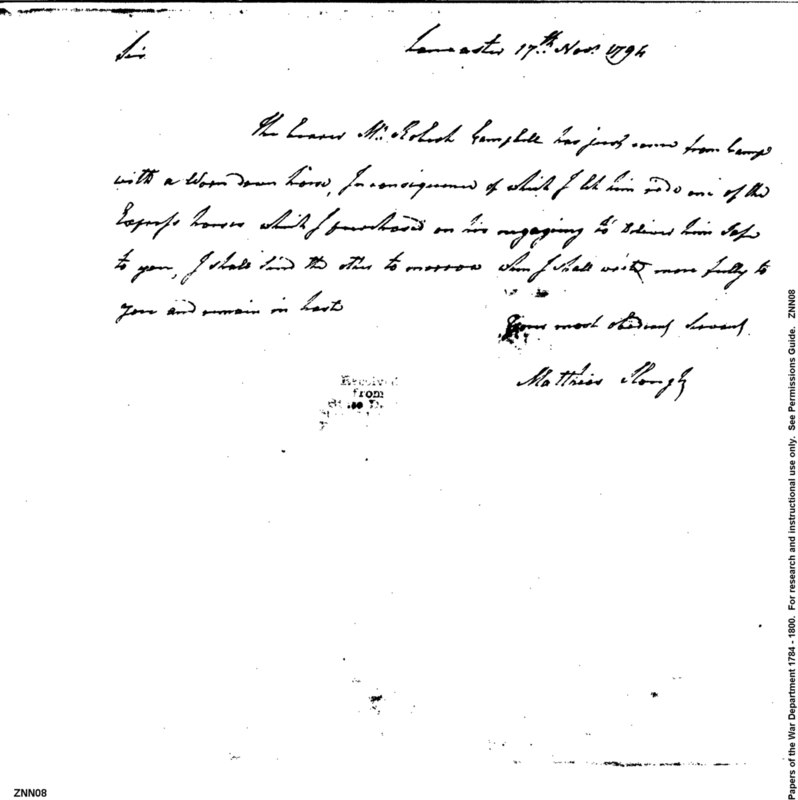 Sir
Lancaster 17th Novr. 1794
The bearer Mr. Robert Campbell has just come from Camp
with a Worn down horse, In consequence of which I let him ride one of the
Express horses which I purchased on his engaging to Deliver him Safe
to you, I shall Send the other to morrow when I shall write more fully to
you and remain in hast
Your most obedient Servant
Matthias Slough
Received
from
ZNN08
Papers of the War Department 1784 - 1800. For research and instructional use only. See Permissions Guide. ZNN08